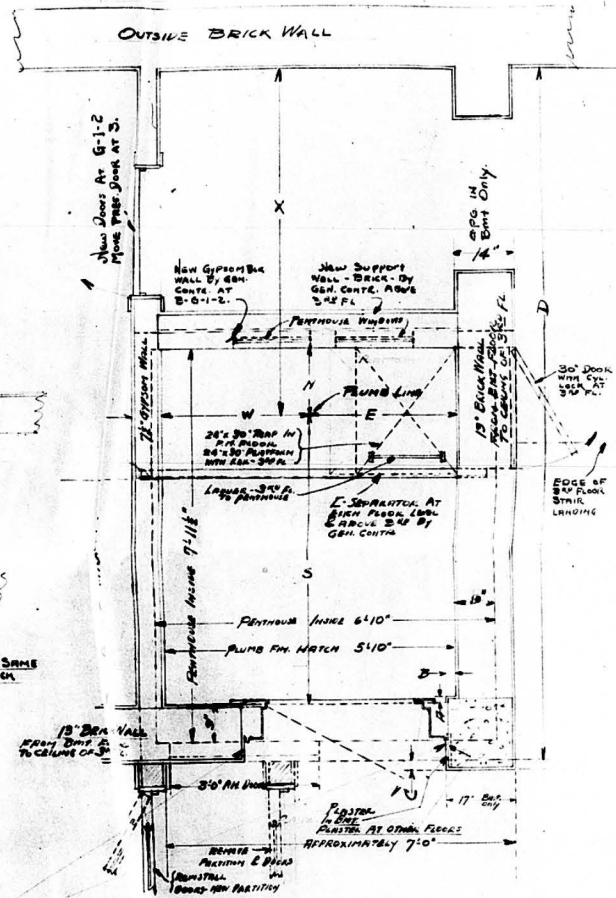 OUTSIDE BRICK WALL
NEW DOORS AT G-1-2
MOVE PRES. DOOR AT 3.
X
OPG IN
BMT ONLY.
14"
D
NEW GYPSUM BLK
WALL BY GEN.
CONTR. AT
B-G-1-2.
NEW SUPPORT
WALL - BRICK - BY
GEN. CONTR. ABOVE
3RD FL
PENTHOUSE WINDOWS
GYPSUM WALL
13" BRICK WALL
FROM BMT. FLOOR
TO CEILING OF 3RD FL
30" DOOR
WITH CYL.
LOCK AT
3RD FL.
N
PLUMB LINE
W
E
24" x 30" TRAP IN
P.H. FLOOR
24" x 30" PLATFORM
3RD FL
LADDER - 3RD FL.
TO PENTHOUSE
SEPARATOR AT
EACH FLOOR LEVEL
& ABOVE 3RD BY
GEN. CONTR.
EDGE OF
3RD FLOOR
STAIR
LANDING
PENTHOUSE INSIDE 7'-11½"
S
PENTHOUSE INSIDE 6'-10"
PLUMB FIN. HATCH 5'-10"
B
A
SAME
13" BRK WALL
FROM BMT. FL
TO CEILING OF 3RD
C
3'-0"
DOOR
PLASTER
IN BMT
PLASTER AT OTHER FLOORS
17" BMT.
ONLY
APPROXIMATELY 7'-0"
REMOTE
PARTITION & DOORS
REINSTALL
DOORS NEW PARTITION